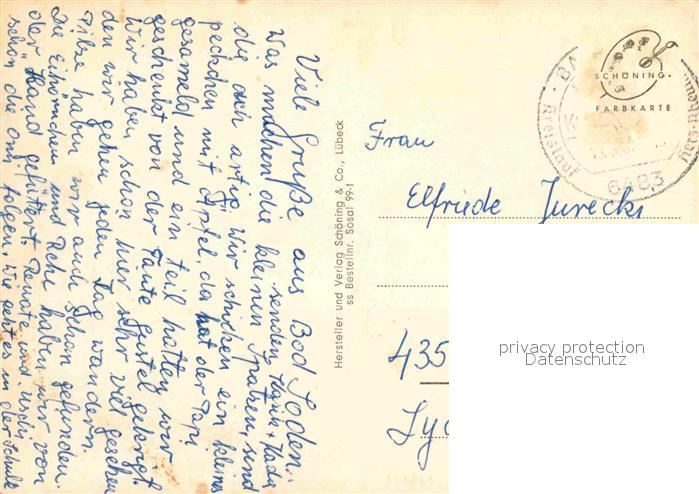 Viele Grüße aus Bad Soden.
senden
Was machen die kleinen Spatzen, sind
die auch artig. Wir schicken ein kleines
peckchen mit Äpfel, da hat der Papi
gesammeld und ein teil hatten wir
geschenkt von der Tante Gustel gekrigt.
Wir haben schon hier sehr viel gesehen
den wir gehen jeden Tag wandern
Pilze haben wir auch schon gefunden.
Die Eihörnchen und Rehe haben wir von
der Hand gefüttert. Renate und Uschi
schön die Omi folgen, wie geht es in der Schule
Hersteller und Verlag Schöning & Co., Lübeck
ss Bestellnr. Sosal 99-1
SCHÖNING·
FARBKARTE
BA
Kreislauf
6483
Frau
Elfriede Jurecki
435
privacy protection
Datenschutz